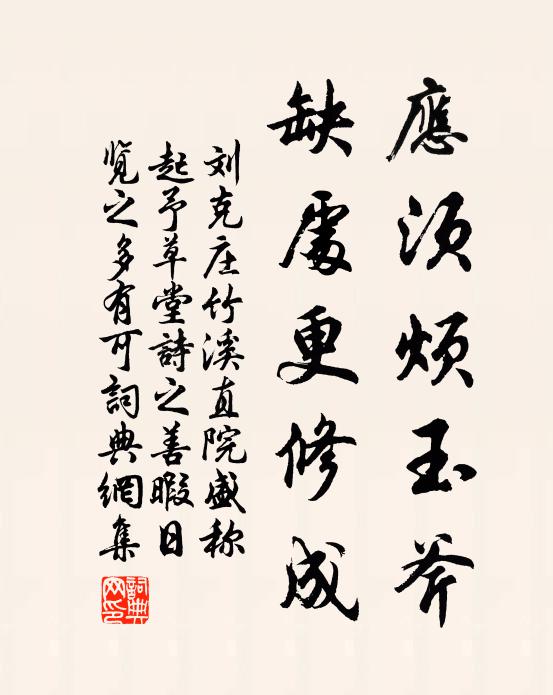 應須煩玉斧
缺處更修成
刘克庄竹溪直院盛称
起予草堂詩之善暇日
覽之多有可詞典網集
詞典網印